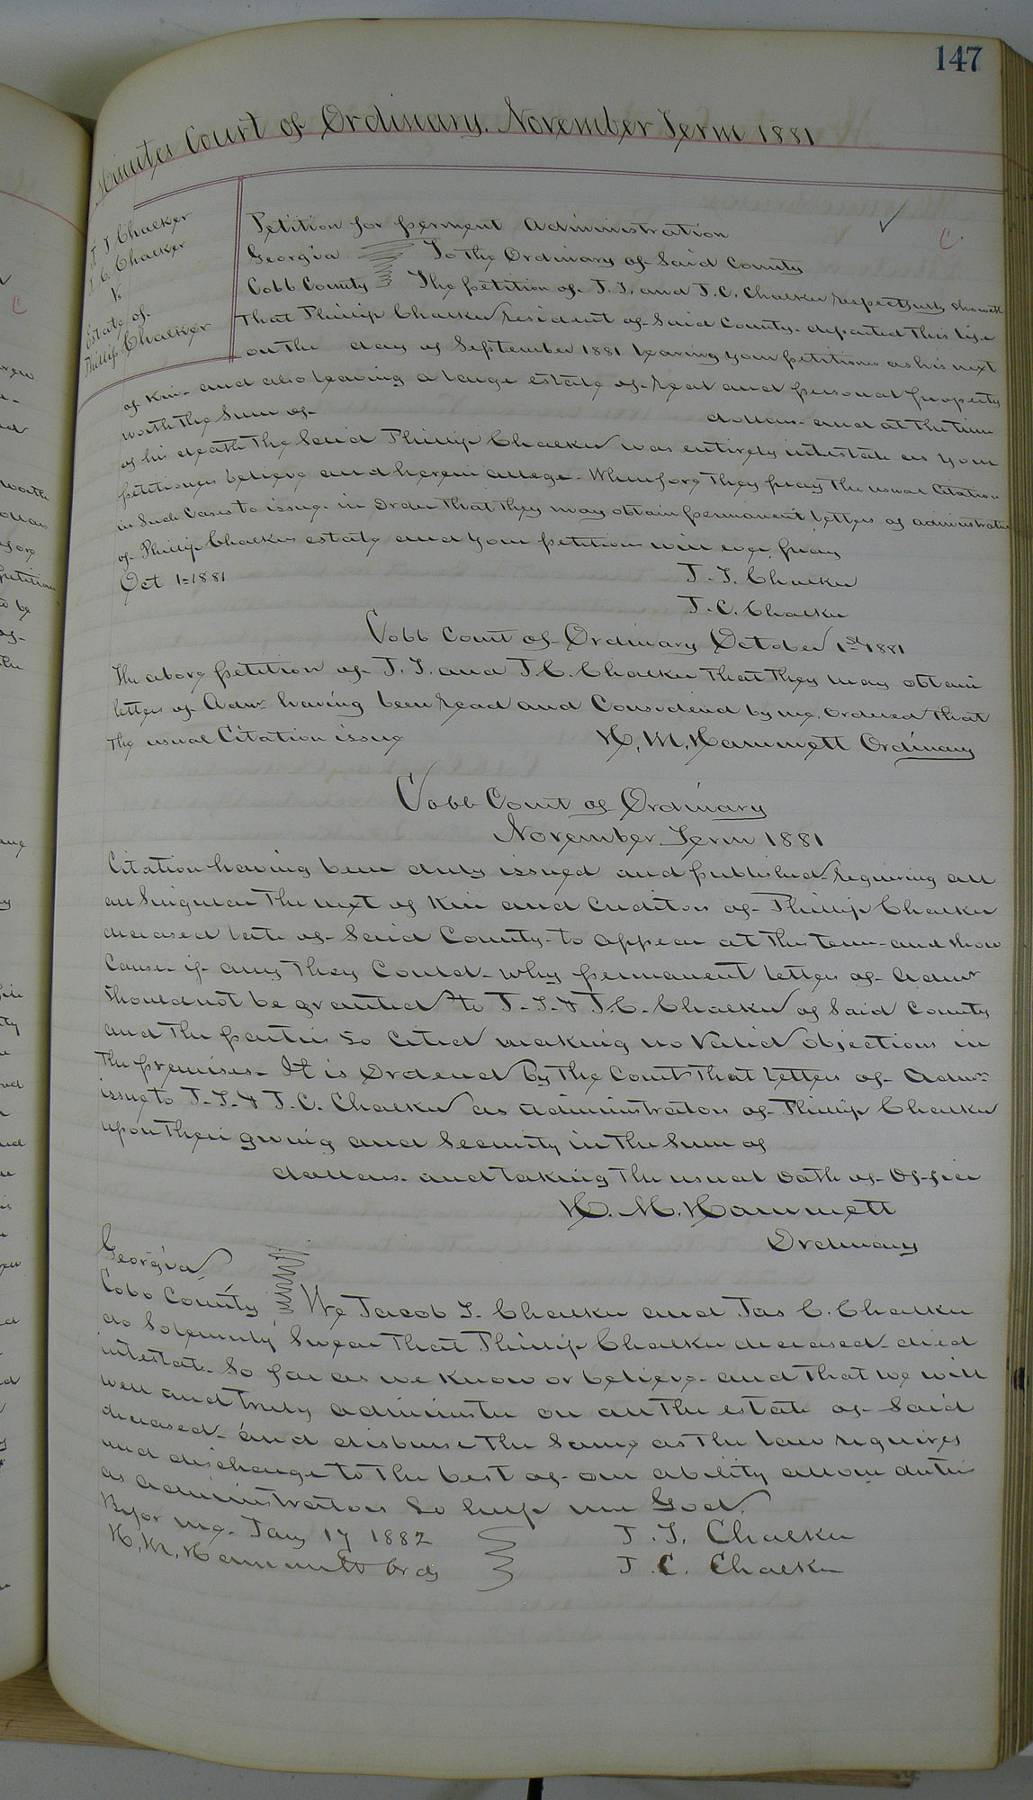 147
Minutes Court of Ordinary. November Term 1881
J. I. Chalker
J. C. Chalker
vs
Estate of
Phillip Chalker
Petition for perment Administration
Georgia To the Ordinary of Said County
Cobb County The petition of J. I. and J. C. Chalker respectfully sheweth
That Phillip Chalker resident of Said County departed this life
on the day of September 1881 leaving your petitioners as his next
of Kin- and also leaving a large estate of real and personal property
worth the Sum of dollars- and at the time
of his death the Said Phillip Chalker was entirely intestate as your
petitioners believe and herein allege. Wherefore They pray the usual Citation
in Such Cases to issue in Order That They may obtain permanent letters of administration
of Phillip Chalkers estate and your petitioners will ever pray
Oct 1=1881 J. I. Chalker
J. C. Chalker
Cobb Court of Ordinary October 1st 1881
The above petition of J. I. and J. C. Chalker That They may obtain
letters of Admr having been read and Considered by me, Ordered That
The usual Citation issue H. M. Hammett Ordinary
Cobb Court of Ordinary
November Term 1881
Citation having been duly issued and published requiring all
an Singular The next of Kin and Creditors of Phillip Chalker
deceased late of Said County to appear at this term and show
Cause if any They Could- why permanent letters of Admr
Should not be granted to J. I. & J. C. Chalker of Said County
and The parties So Cited making no Valid objections in
The premises- It is Ordered by The Court That letters of Admn
issue to J. I. & J. C. Chalker as administrators of Phillip Chalker
upon Their giving and Security in The Sum of
dollars. and taking The usual Oath of Office
H. M. Hammett
Ordinary
Georgia
Cobb County We Jacob I. Chalker and Jas C. Chalker
do Solemnly Swear That Phillip Chalker deceased died
intestate So far as we Know or believe- and That we will
well and truly administer on all The estate of Said
deceased- and disburse The Same as The law requires
and discharge to The best of our ability all our duties
as administrators So help me God.
Before me. Jany 17 1882 J. I. Chalker
H. M. Hammett Ordy J. C. Chalker